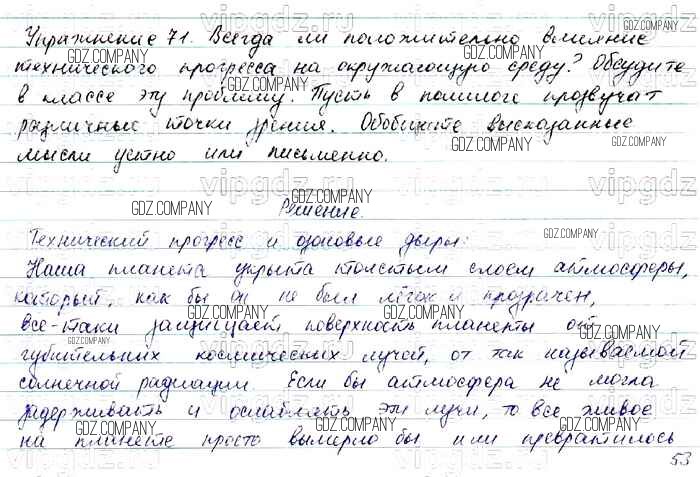 Упражнение 71. Всегда ли положительно влияние
технического прогресса на окружающую среду? Обсудите
в классе эту проблему. Пусть в полилоге прозвучат
различные точки зрения. Обобщите высказанные
мысли устно или письменно.
Решение.
Технический прогресс и озоновые дыры:
Наша планета укрыта толстым слоем атмосферы,
который, как бы он не был лёгок и прозрачен,
все-таки защищает поверхность планеты от
губительных космических лучей, от так называемой
солнечной радиации. Если бы атмосфера не могла
задерживать и ослаблять эти лучи, то все живое
на планете просто вымерло бы или превратилось
53